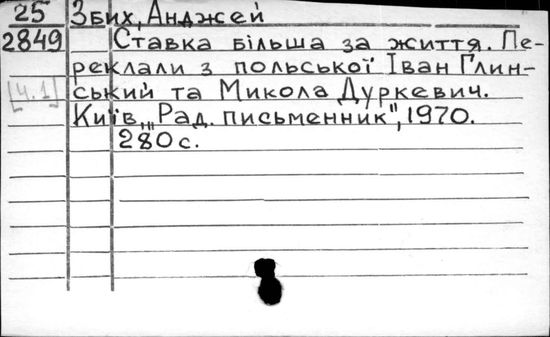 25 Збих, Анджей
2849 Ставка більша за життя. Пе-
реклали з польської Іван Глин-
[ч.1] ський та Микола Дуркевич.
Київ, „Рад. письменник", 1970.
280 с.